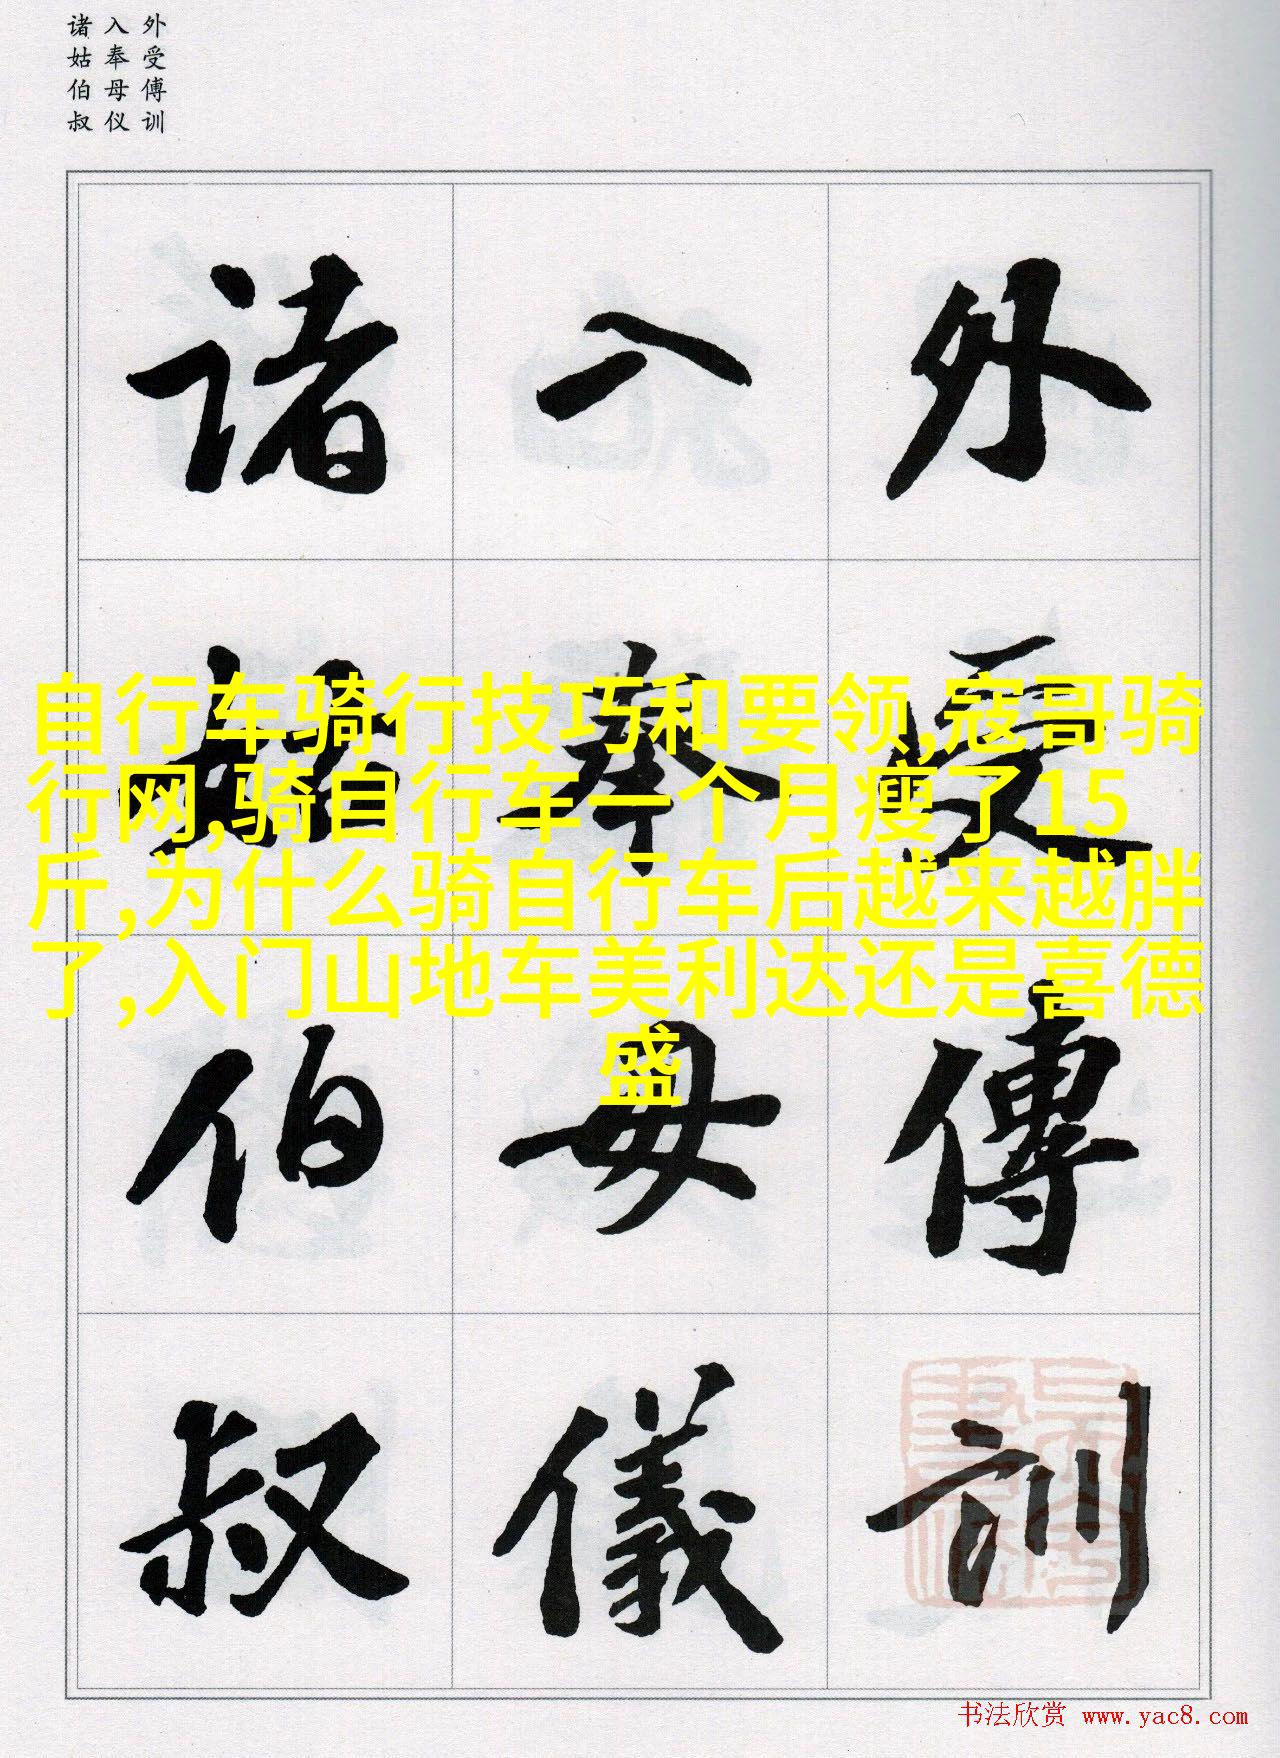 外受傅训
入奉母仪
诸姑伯叔
外受傅訓
入奉母儀
诸姑伯叔
自行车骑行技巧和要领,寇哥骑
行网,骑自行车一个月瘦了15
斤,为什么骑自行车后越来越胖
了,入门山地车美利达还是喜德
盛
书法欣赏 www.yac8.com